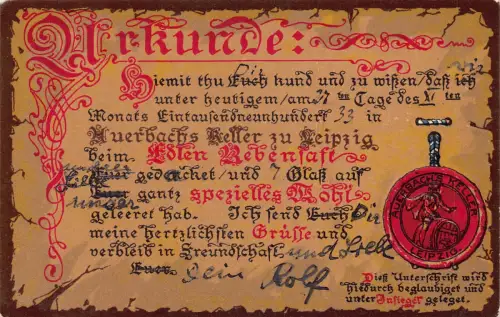 Urkunde:
Hiemit thu Euch Dir kund und zu wißen/daß ich wir
unter heutigem/am 27 ten Tage des XI ten
Monats Eintausendneunhundert 33 in
Auerbachs Keller zu Leipzig
beim Edlen Rebensaft
gedacket/und 7 Glaß auf
Euer gantz spezielles Wohl
geleeret hab. Ich send Euch Dir
meine hertzlichsten Grüsse und Liebe
verbleib in Freundschaft
Euer Dein Rolf
AUERBACHS KELLER
LEIPZIG
Dieß Unterschrift wird
hiedurch beglaubiget und
unter Insiegel geleget.